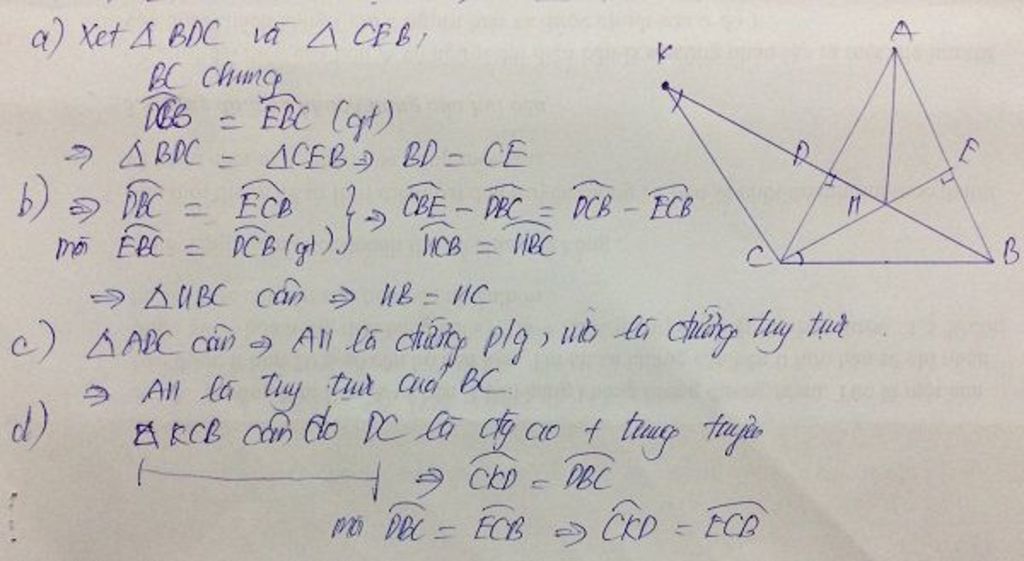 a) Xét △ BDC và △ CEB,
BC chung
DCB = EBC (gt)
⇒ △ BDC = △CEB ⇒ BD = CE
b) ⇒ DBC = ECB } ⇒ CBE - DBC = DCB - ECB
mà EBC = DCB (gt) HCB = HBC
⇒ △HBC cân ⇒ HB = HC
c) △ABC cân ⇒ AH là đường p/g, mà là đường tuy tực
⇒ AH là tuy tực của BC
d) △KCB cân do DC là đg cao + trung tuyến
⇒ CKD = DBC
mà DBC = ECB ⇒ CKD = ECB
A
K
D
E
H
C
B